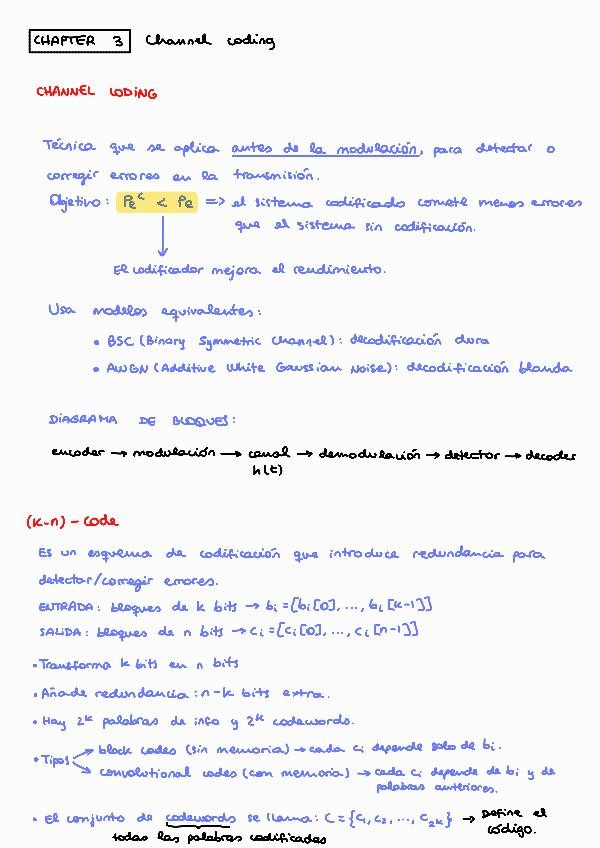 CHAPTER 3 Channel coding
CHANNEL CODING
Técnica que se aplica antes de la modulación, para detectar o
corregir errores en la transmisión.
Objetivo: Pe^c < Pe => el sistema codificado comete menos errores
que el sistema sin codificación.
El codificador mejora el rendimiento.
Usa modelos equivalentes:
• BSC (Binary Symmetric Channel): decodificación dura
• AWGN (Additive White Gaussian Noise): decodificación blanda
DIAGRAMA DE BLOQUES:
encoder → modulación → canal → demodulación → detector → decoder
h(t)
(k-n) - code
Es un esquema de codificación que introduce redundancia para
detectar/corregir errores.
ENTRADA: bloques de k bits → bi = [bi[0], ..., bi[k-1]]
SALIDA: bloques de n bits → ci = [ci[0], ..., ci[n-1]]
• Transforma k bits en n bits
• Añade redundancia: n-k bits extra.
• Hay 2^k palabras de info y 2^k codewords.
• Tipos → block codes (sin memoria) → cada ci depende solo de bi.
→ convolutional codes (con memoria) → cada ci depende de bi y de
palabras anteriores.
• El conjunto de codewords se llama: C = {C1, C2, ..., C2k} → Define el
código.
todas las palabras codificadas